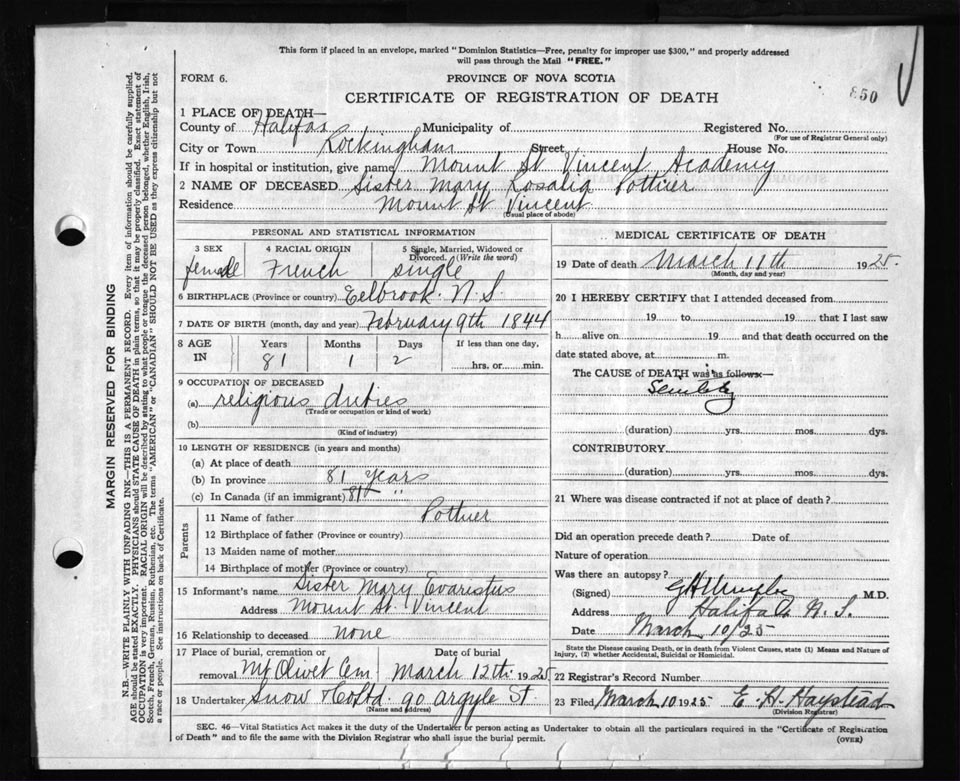 This form if placed in an envelope, marked "Dominion Statistics—Free, penalty for improper use $300," and properly addressed
will pass through the Mail "FREE."
FORM 6.
PROVINCE OF NOVA SCOTIA
850
CERTIFICATE OF REGISTRATION OF DEATH
1 PLACE OF DEATH—
County of Halifax Municipality of Registered No.
(For use of Registrar General only)
City or Town Rockingham Street House No.
If in hospital or institution, give name Mount St Vincent Academy
2 NAME OF DECEASED Sister Mary Rosalia Pottier
Residence Mount St Vincent
(Usual place of abode)
PERSONAL AND STATISTICAL INFORMATION
3 SEX 4 RACIAL ORIGIN 5 Single, Married, Widowed or
Divorced. (Write the word)
female French single
6 BIRTHPLACE (Province or country) Eelbrook. N.S.
7 DATE OF BIRTH (month, day and year) February 9th 1844
8 AGE Years Months Days If less than one day,
IN 81 1 2 hrs. or min.
9 OCCUPATION OF DECEASED
(a) religious duties
(Trade or occupation or kind of work)
(b)
(Kind of industry)
10 LENGTH OF RESIDENCE (in years and months)
(a) At place of death
(b) In province 81 years
(c) In Canada (if an immigrant) 81 "
Parents
11 Name of father Pottier
12 Birthplace of father (Province or country)
13 Maiden name of mother
14 Birthplace of mother (Province or country)
15 Informant's name Sister Mary Evaristus
Address Mount St. Vincent
16 Relationship to deceased none
17 Place of burial, cremation or Date of burial
removal Mt Olivet Cem March 12th 1925
18 Undertaker Snow & Co Ltd. 90 Argyle St.
(Name and address)
MEDICAL CERTIFICATE OF DEATH
19 Date of death March 11th 1925
(Month, day and year)
20 I HEREBY CERTIFY that I attended deceased from
19 to 19 that I last saw
h alive on 19 and that death occurred on the
date stated above, at m.
The CAUSE of DEATH was as follows—
Senility
(duration) yrs. mos. dys.
CONTRIBUTORY
(duration) yrs. mos. dys.
21 Where was disease contracted if not at place of death?
Did an operation precede death? Date of
Nature of operation
Was there an autopsy?
(Signed) M.D.
Address Halifax N.S.
Date March 10/25
State the Disease causing Death, or in death from Violent Causes, state (1) Means and Nature of
Injury, (2) whether Accidental, Suicidal or Homicidal.
22 Registrar's Record Number
23 Filed March 10 1925 E. H. Haystead
(Division Registrar)
SEC. 46—Vital Statistics Act makes it the duty of the Undertaker or person acting as Undertaker to obtain all the particulars required in the "Certificate of Registration
of Death" and to file the same with the Division Registrar who shall issue the burial permit.
(OVER)
MARGIN RESERVED FOR BINDING
N.B.—WRITE PLAINLY WITH UNFADING INK—THIS IS A PERMANENT RECORD. Every item of information should be carefully supplied.
AGE should be stated EXACTLY. PHYSICIANS should STATE CAUSE OF DEATH in plain terms, so that it may be properly classified. Exact statement of
OCCUPATION is very important. RACIAL ORIGIN will be described by stating to what people or tongue the deceased person belonged, whether English, Irish,
Scotch, French, German, Russian, Ruthenian, etc. The terms "AMERICAN" or "CANADIAN" SHOULD NOT BE USED as they express citizenship but not
a race or people. See instructions on back of Certificate.